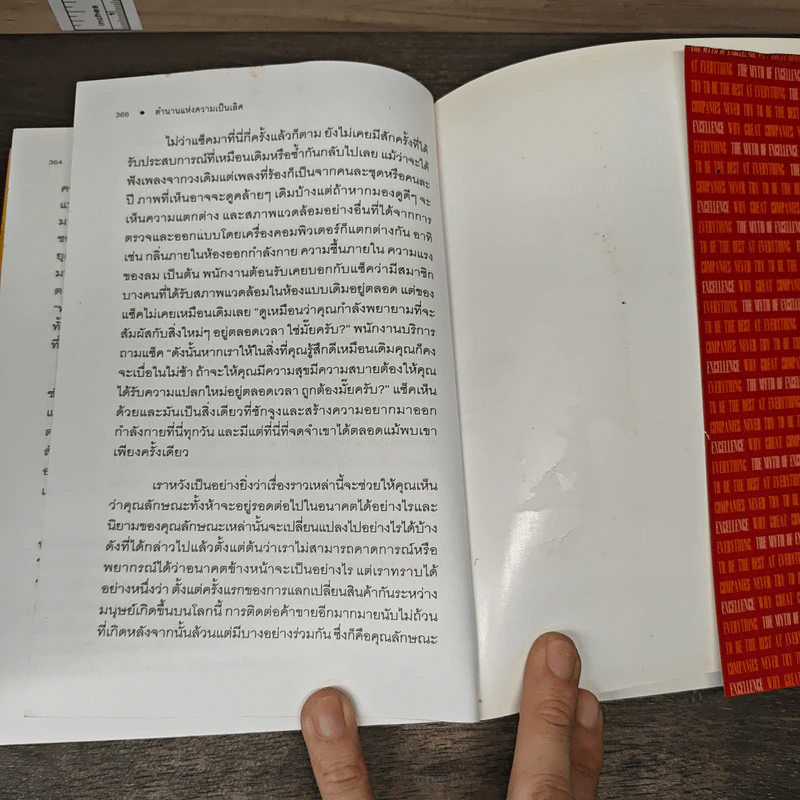 inches 1
364
366 • ตำนานแห่งความเป็นเลิศ
ไม่ว่าแช็คมาที่นี่กี่ครั้งแล้วก็ตาม ยังไม่เคยมีสักครั้งที่ได้
รับประสบการณ์ที่เหมือนเดิมหรือซ้ำกันกลับไปเลย แม้ว่าจะได้
ฟังเพลงจากวงเดิมแต่เพลงที่ร้องก็เป็นจากคนละชุดหรือคนละ
ปี ภาพที่เห็นอาจจะดูคล้ายๆ เดิมบ้างแต่ถ้าหากมองดูดีๆ จะ
เห็นความแตกต่าง และสภาพแวดล้อมอย่างอื่นที่ได้จากการ
ตรวจและออกแบบโดยเครื่องคอมพิวเตอร์ก็แตกต่างกัน อาทิ
เช่น กลิ่นภายในห้องออกกำลังกาย ความชื้นภายใน ความแรง
ของลม เป็นต้น พนักงานต้อนรับเคยบอกกับแช็คว่ามีสมาชิก
บางคนที่ได้รับสภาพแวดล้อมในห้องแบบเดิมอยู่ตลอด แต่ของ
แช็คไม่เคยเหมือนเดิมเลย "ดูเหมือนว่าคุณกำลังพยายามที่จะ
สัมผัสกับสิ่งใหม่ๆ อยู่ตลอดเวลา ใช่มั๊ยครับ?" พนักงานบริการ
ถามแช็ค "ดังนั้นหากเราให้ในสิ่งที่คุณรู้สึกดีเหมือนเดิมคุณก็คง
จะเบื่อในไม่ช้า ถ้าจะให้คุณมีความสุขมีความสบายต้องให้คุณ
ได้รับความแปลกใหม่อยู่ตลอดเวลา ถูกต้องมั๊ยครับ?" แช็คเห็น
ด้วยและมันเป็นสิ่งเดียวที่ชักจูงและสร้างความอยากมาออก
กำลังกายที่นี่ทุกวัน และมีแต่ที่นี่ที่จดจำเขาได้ตลอดแม้พบเขา
เพียงครั้งเดียว
เราหวังเป็นอย่างยิ่งว่าเรื่องราวเหล่านี้จะช่วยให้คุณเห็น
ว่าคุณลักษณะทั้งห้าจะอยู่รอดต่อไปในอนาคตได้อย่างไรและ
นิยามของคุณลักษณะเหล่านั้นจะเปลี่ยนแปลงไปอย่างไรได้บ้าง
ดังที่ได้กล่าวไปแล้วตั้งแต่ต้นว่าเราไม่สามารถคาดการณ์หรือ
พยากรณ์ได้ว่าอนาคตข้างหน้าจะเป็นอย่างไร แต่เราทราบได้
อย่างหนึ่งว่า ตั้งแต่ครั้งแรกของการแลกเปลี่ยนสินค้ากันระหว่าง
มนุษย์เกิดขึ้นบนโลกนี้ การติดต่อค้าขายอีกมากมายนับไม่ถ้วน
ที่เกิดหลังจากนั้นล้วนแต่มีบางอย่างร่วมกัน ซึ่งก็คือคุณลักษณะ
THE MYTH OF EXCELLENCE
AT EVERYTHING THE MYTH OF EXCELLENCE
TRY TO BE THE BEST AT EVERYTHING THE
COMPANIES NEVER TRY TO BE THE BEST
EXCELLENCE WHY GREAT COMPANIES
EVERYTHING THE MYTH OF EXCELLENCE
TO BE THE BEST AT EVERYTHING
COMPANIES NEVER TRY TO BE THE
EXCELLENCE WHY GREAT COMPANIES
EVERYTHING THE MYTH OF EXCELLENCE
TO BE THE BEST AT EVERYTHING
COMPANIES NEVER TRY TO BE THE
EXCELLENCE WHY GREAT COMPANIES
EVERYTHING THE MYTH OF EXCELLENCE
TO BE THE BEST AT EVERYTHING
COMPANIES NEVER TRY TO BE THE
EXCELLENCE WHY GREAT COMPANIES
EVERYTHING THE MYTH OF EXCELLENCE
TO BE THE BEST AT EVERYTHING
COMPANIES NEVER TRY TO BE THE
EXCELLENCE WHY GREAT COMPANIES
EVERYTHING THE MYTH OF EXCELLENCE
TO BE THE BEST AT EVERYTHING
COMPANIES NEVER TRY TO BE THE
EXCELLENCE WHY GREAT COMPANIES
EVERYTHING THE MYTH OF EXCE
TO BE THE BEST AT EVERYTHING
COMPANIES NEVER TRY TO
EXCELLENCE WHY GREAT
EVERYTHING THE MYTH OF
TO BE THE BEST AT EVERY
COMPANIES NEVER TRY TRY
EXCELLENCE WHY GREAT